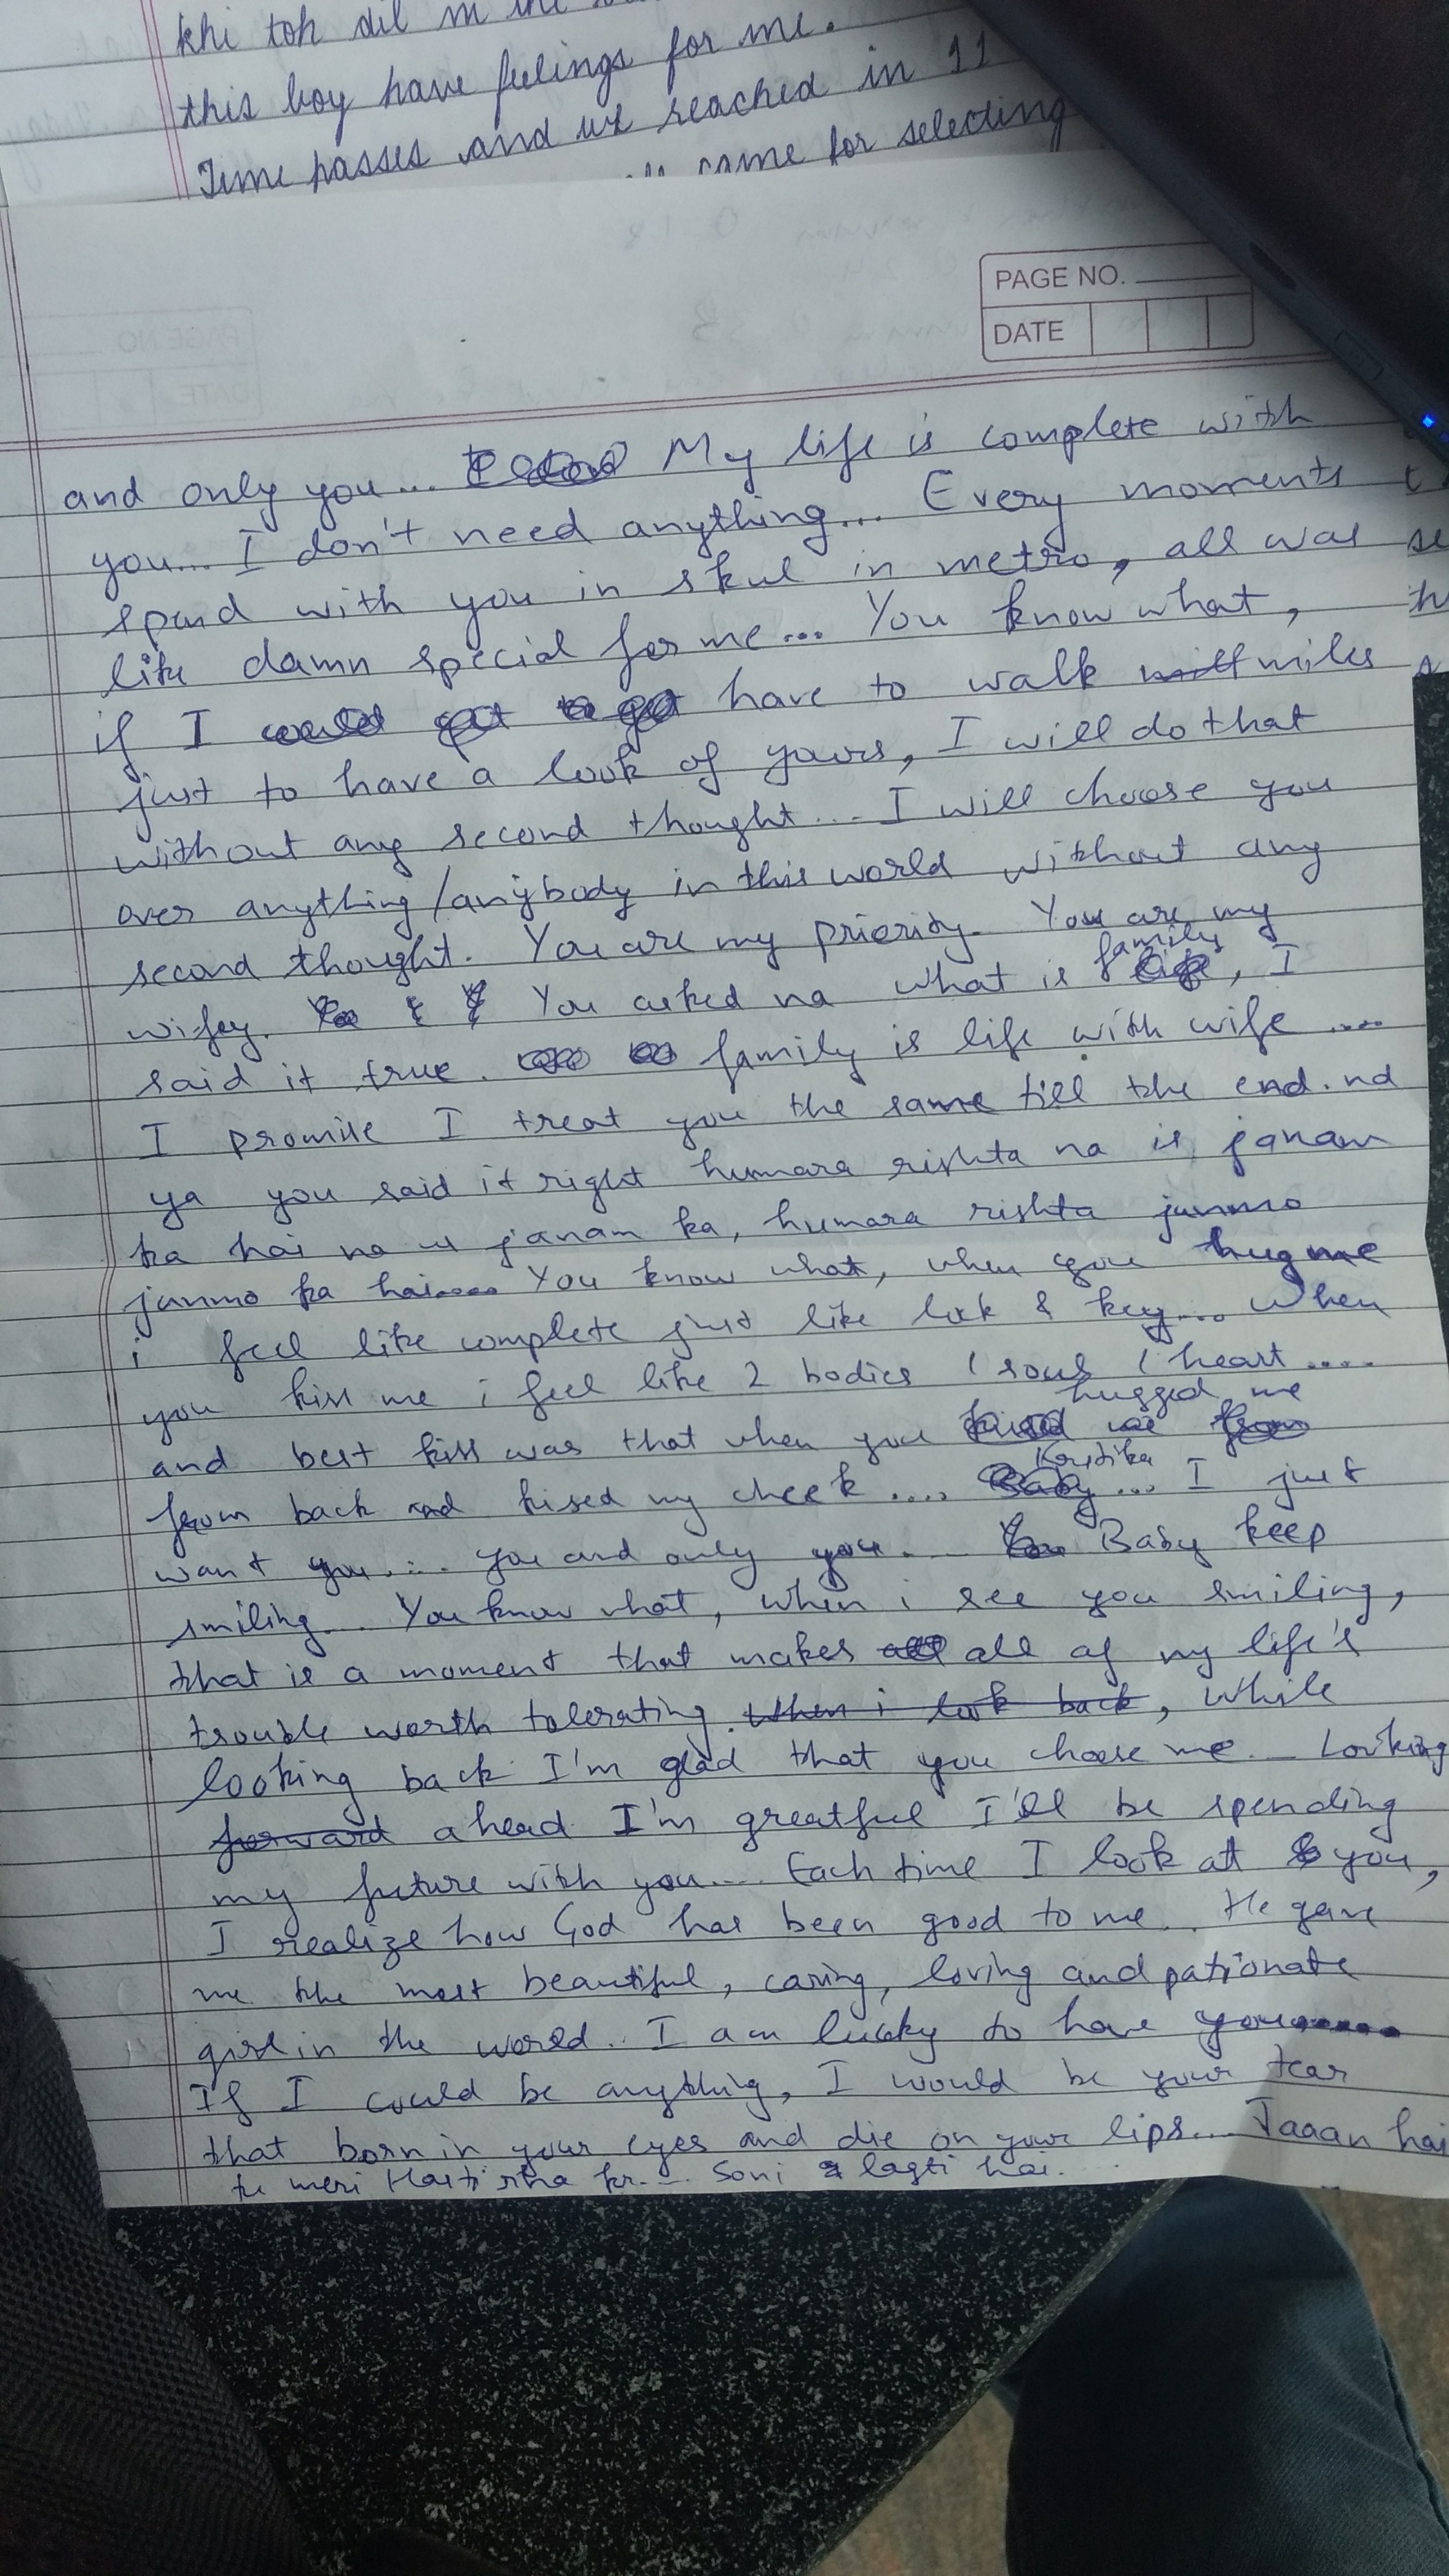 khi toh dil m
this boy have feelings for me.
Time passes and we reached in 11
came for selecting
PAGE NO.
DATE
and only you... My life is complete with
you... I don't need anything... Every moments
spend with you in skul in metro, all was
like damn special for me... You know what,
if I have to walk miles
just to have a look of yours, I will do that
without any second thought... I will choose you
over anything/anybody in this world without any
second thought. You are my priority. You are my
wifey. You asked na what is family, I
said it true. family is life with wife ....
I promise I treat you the same till the end. nd
ya you said it right humara rishta na is janam
ka hai na us janam ka, humara rishta janmo
janmo ka hai.... You know what, when you hug me
i feel like complete just like lock & key... When
you kiss me i feel like 2 bodies 1 soul 1 heart ....
and best kiss was that when you hugged me
from back nd kised my cheek .... Kritika ... I just
want you.... you and only you... Baby keep
smiling... You know what, when i see you smiling,
that is a moment that makes all of my life's
trouble worth tolerating. When i look back, While
looking back I'm glad that you choose me... Looking
forward ahead I'm greatful I'll be spending
my future with you.... Each time I look at you,
I realize how God has been good to me.. He gave
me the most beautiful, caring, loving and pationate
girl in the world.. I am lucky to have you.....
If I could be anything, I would be your tear
that born in your eyes and die on your lips.... Jaaan hai
tu meri Hasti rha kr... Soni lagti hai....